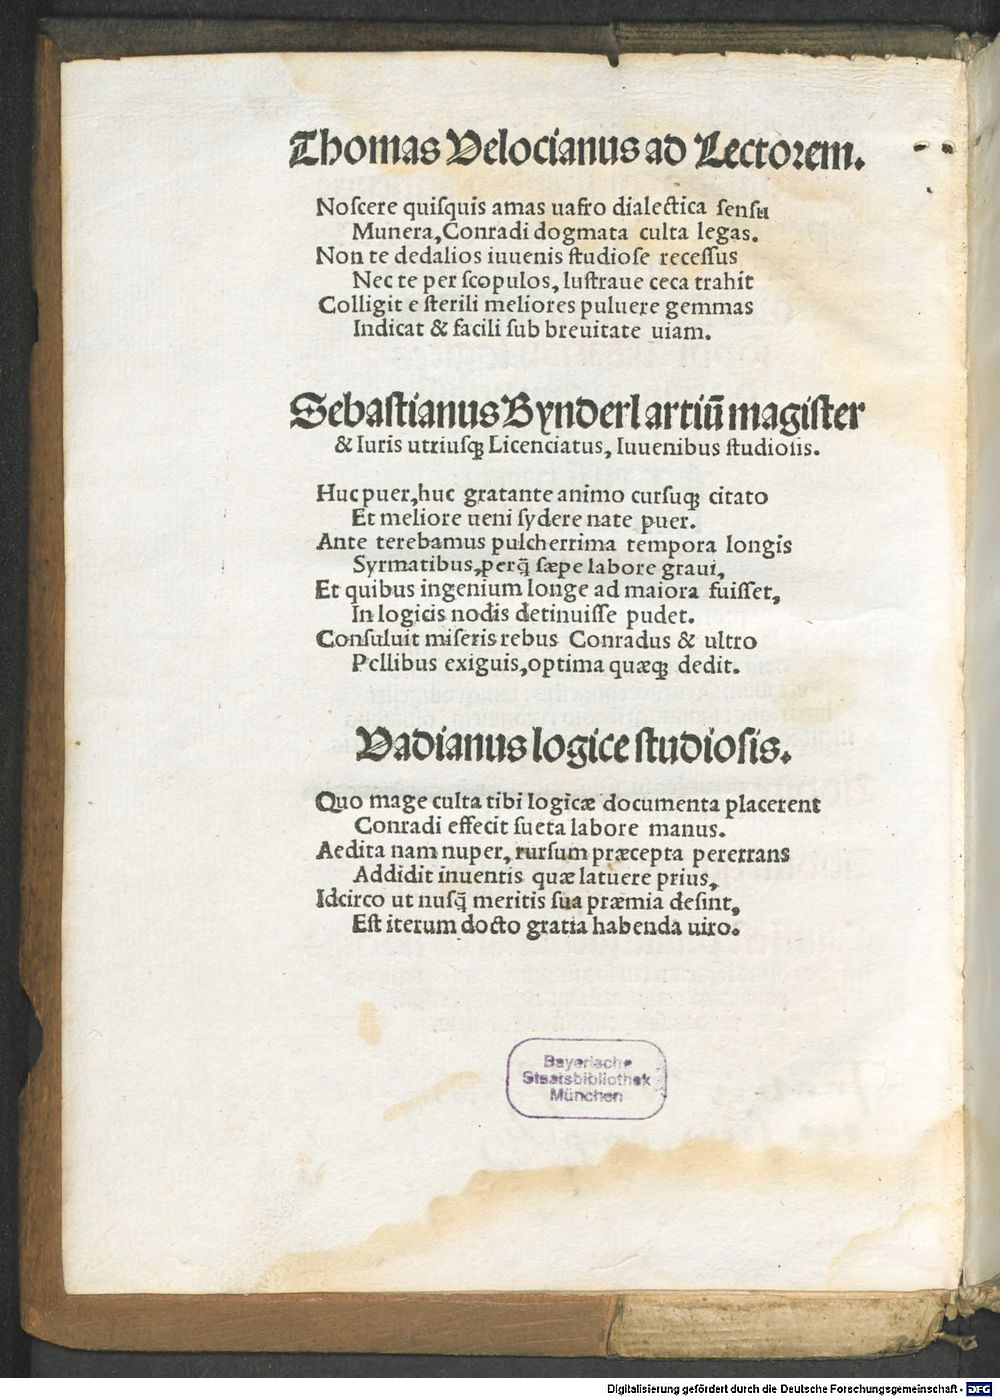 Thomas Velocianus ad Lectorem.
Noscere quisquis amas uafro dialectica sensu
Munera, Conradi dogmata culta legas.
Non te dedalios iuuenis studiose recessus
Nec te per scopulos, lustraue ceca trahit
Colligit e sterili meliores puluere gemmas
Indicat & facili sub breuitate uiam.
Sebastianus Bynderl artiū magister
& Iuris utriusqꝫ Licenciatus, Iuuenibus studiosis.
Huc puer, huc gratante animo cursuqꝫ citato
Et meliore ueni sydere nate puer.
Ante terebamus pulcherrima tempora longis
Syrmatibus, perq̄ sæpe labore graui,
Et quibus ingenium longe ad maiora fuisset,
In logicis nodis detinuisse pudet.
Consuluit miseris rebus Conradus & ultro
Pellibus exiguis, optima quæqꝫ dedit.
Vadianus logice studiosis.
Quo mage culta tibi logicæ documenta placerent
Conradi effecit sueta labore manus.
Aedita nam nuper, rursum præcepta pererrans
Addidit inuentis quæ latuere prius,
Idcirco ut nusq̄ meritis sua præmia desint,
Est iterum docto gratia habenda uiro.
Bayerische
Staatsbibliothek
München
Digitalisierung gefördert durch die Deutsche Forschungsgemeinschaft - DFG